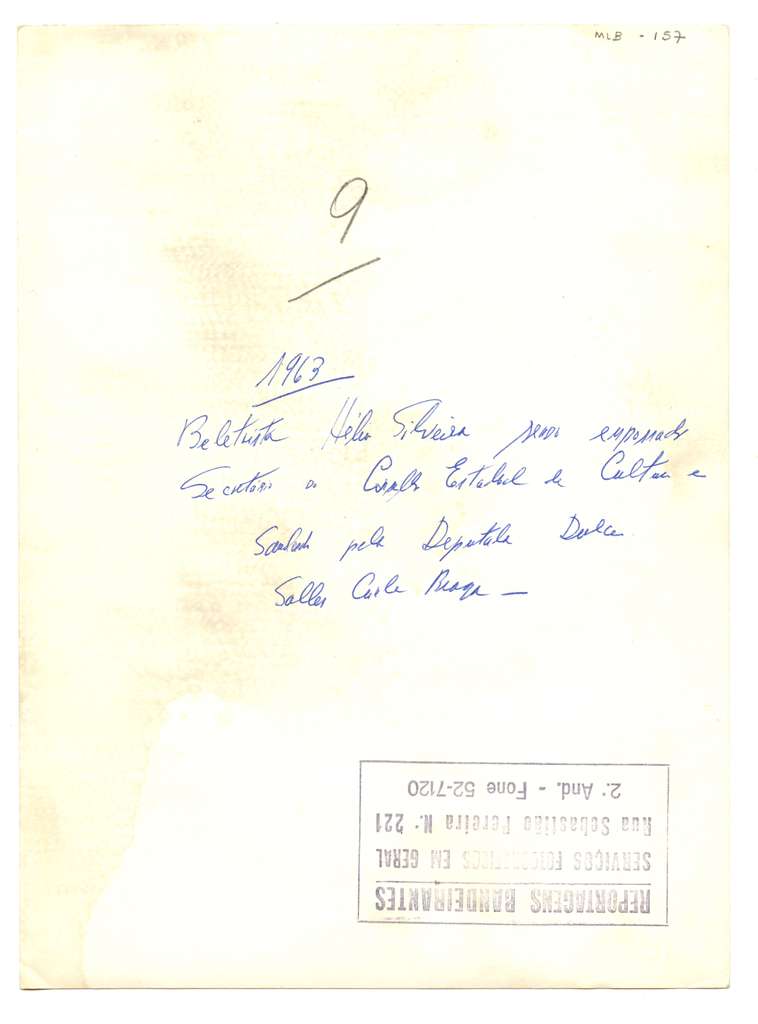 MLB - 157
9
1963
Beletrista Hélio Silveira sendo empossado
Secretário do Conselho Estadual de Cultura e
Saudado pela Deputada Dulce
Salles Cunha Braga —
REPORTAGENS BANDEIRANTES
SERVIÇOS FOTOGRAFICOS EM GERAL
Rua Sebastião Pereira N.º 221
2.º And. - Fone 52-7120